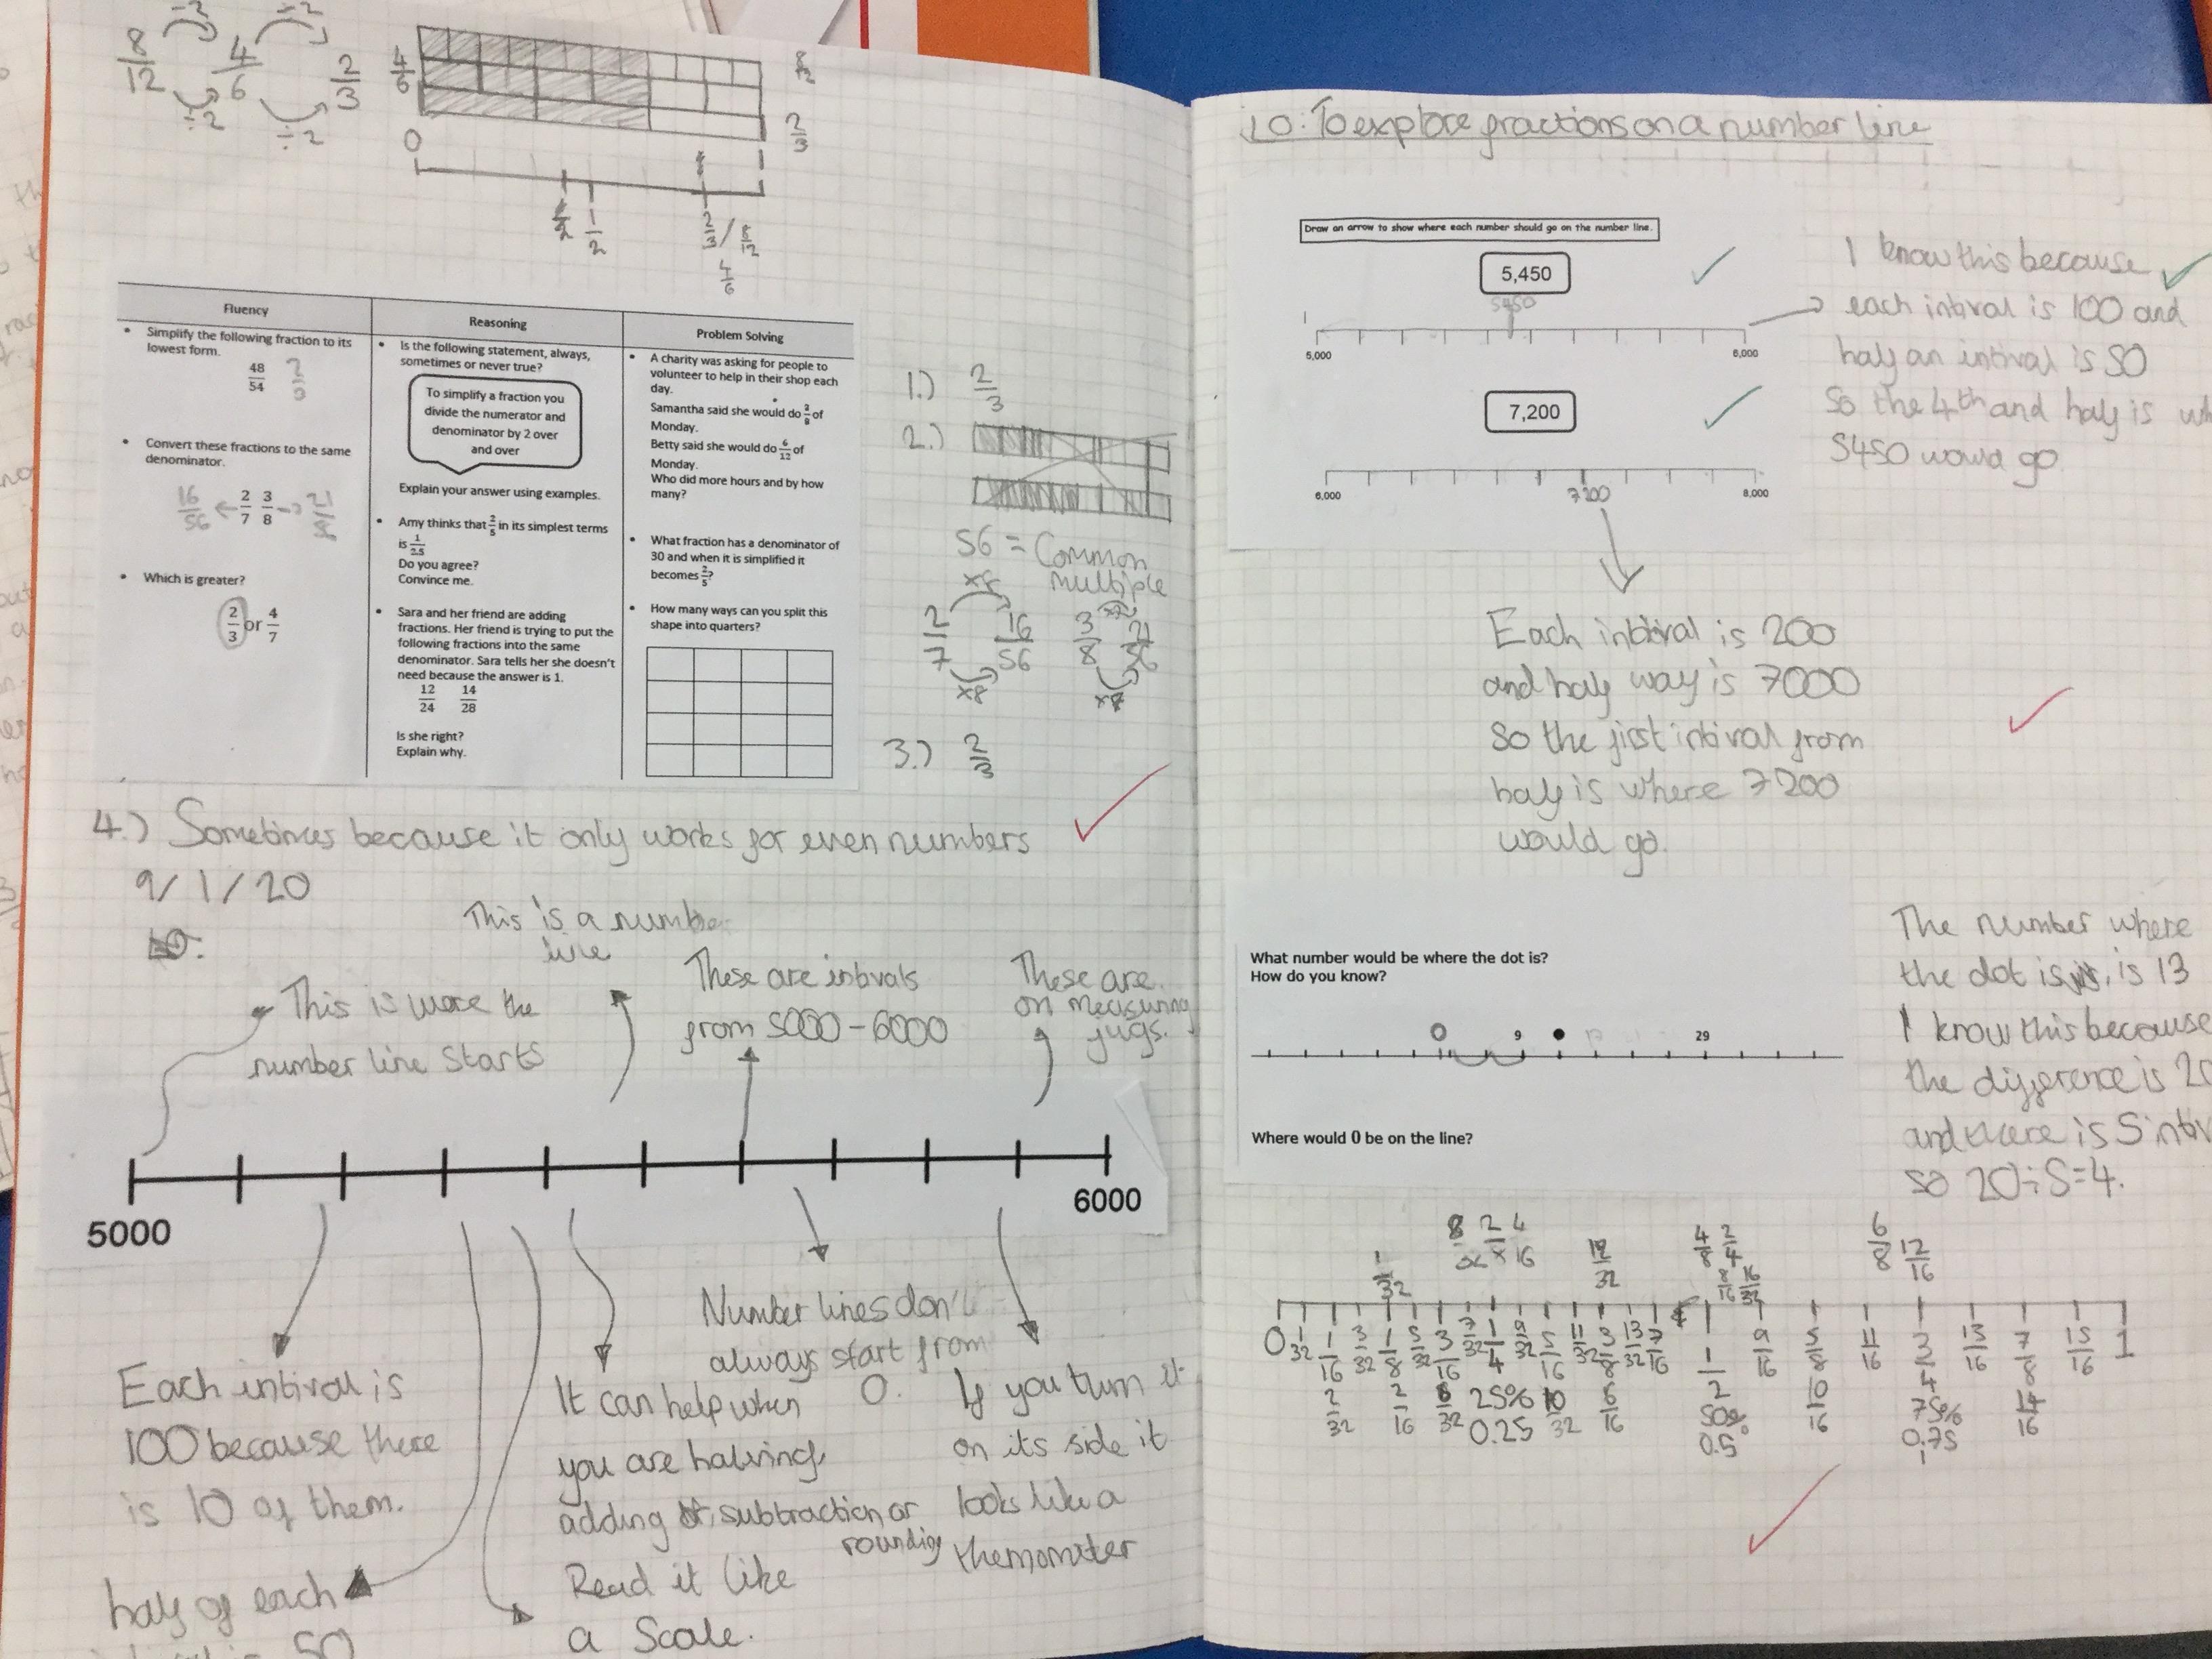 8/12 ÷2 4/6 ÷2 2/3
÷2 ÷2
4/6
8/12
2/3
0 1
1/2
2/3 / 8/12
4/6
Fluency
Simplify the following fraction to its
lowest form.
48/54 2/3
Convert these fractions to the same
denominator.
16/56 ← 2/7 3/8 → 21/56
Which is greater?
2/3 or 4/7
Reasoning
Is the following statement, always,
sometimes or never true?
To simplify a fraction you
divide the numerator and
denominator by 2 over
and over
Explain your answer using examples.
Amy thinks that 2/5 in its simplest terms
is 1/2.5
Do you agree?
Convince me.
Sara and her friend are adding
fractions. Her friend is trying to put the
following fractions into the same
denominator. Sara tells her she doesn't
need because the answer is 1.
12/24 14/28
Is she right?
Explain why.
Problem Solving
A charity was asking for people to
volunteer to help in their shop each
day.
Samantha said she would do of
Monday.
Betty said she would do 6/12 of
Monday.
Who did more hours and by how
many?
What fraction has a denominator of
30 and when it is simplified it
becomes 2/5?
How many ways can you split this
shape into quarters?
1.) 2/3
2.)
56 = Common
multiple
x8
2/7 16/56 3/8 21/56
x8
3.) 2/3
4.) Sometimes because it only works for even numbers
9/1/20
This is a number
line
This is were the
number line starts
These are intivals
from 5000 - 6000
These are
on measuring
jugs.
5000
6000
Each intival is
100 because there
is 10 of them.
half of each
50
It can help when
you are halving,
adding subtraction or
rounding
Read it like
a Scale.
Number lines don't
always start from
0.
If you turn it
on its side it
looks like a
themomater
LO: To explore fractions on a number line
Draw an arrow to show where each number should go on the number line.
5,450
5450
5,000
6,000
I know this because
each intival is 100 and
half an intival is 50
So the 4th and half is
5450 would go
7,200
6,000
7200
8,000
Each intival is 200
and half way is 7000
So the first intival from
half is where 7200
would go.
What number would be where the dot is?
How do you know?
0 9 29
Where would 0 be on the line?
The number where
the dot is, is 13
I know this because
the difference is 20
and there is 5
so 20÷5=4.
1/32 2/8 4/16 12/32 4/8 2/4 6/8 12/16
8/16 16/32
0 1/32 1/16 3/32 1/8 5/32 3/16 7/32 1/4 9/32 5/16 11/32 3/8 13/32 7/16 1/2 9/16 5/8 11/16 3/4 13/16 7/8 15/16 1
2/32 2/16 6/32 25% 10/32 6/16 50% 10/16 75% 14/16
0.25 0.5 0.75